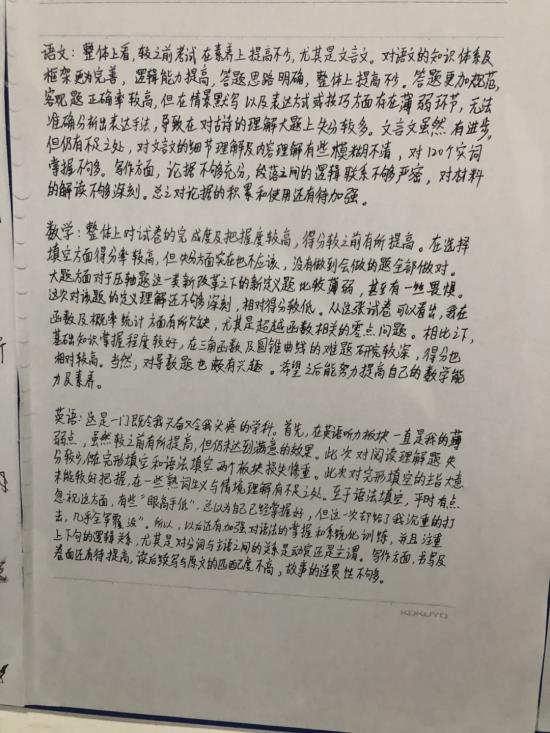 语文：整体上看，较之前考试在素养上提高不少，尤其是文言文。对语文的知识体系及
框架更为完善，逻辑能力提高，答题思路明确，整体上提高不少。答题更加规范，
客观题正确率较高，但在情景默写以及表达方式或技巧方面有存在薄弱环节，无法
准确分析出表达手法，导致在对古诗的理解大题上失分较多。文言文虽然有进步，
但仍有不足之处，对文言的细节理解及内容理解有些模糊不清，对120个实词
掌握不够多。写作方面，论据不够充分，段落之间的逻辑联系不够严密，对材料
的解读不够深刻。总之对论据的积累和使用还有待加强。
数学：整体上对试卷的完成度及把握度较高，得分较之前有所提高。在选择
填空方面得分率较高，但失分方面实在也不应该，没有做到会做的题全部做对。
大题方面对于压轴题这一类新改革之下的新定义题比较薄弱，甚至有一些畏惧。
这次对该题的定义理解还不够深刻，相对得分较低。从这张试卷可以看出，我在
函数及概率统计方面有所欠缺，尤其是超越函数相关的零点问题。相比之下，
基础知识掌握程度较好，在三角函数及圆锥曲线的难题研究较深，得分也
相对较高。当然，对导数题也颇有兴趣。希望之后能努力提高自己的数学能
力及素养。
英语：这是一门既令我兴奋又令我头疼的学科。首先，在英语听力板块一直是我的薄
弱点，虽然较之前有所提高，但仍未达到满意的效果。此次对阅读理解题失
分较少，但在完形填空和语法填空两个板块损失惨重。此次对完形填空的主旨大意
未能较好把握，在一些熟词生义与情境理解有不足之处。至于语法填空，平时有点
忽视这方面，有些“眼高手低”，总以为自己已经掌握好，但这一次却给了我沉重的打
击，几乎全军覆没”。所以，以后还有加强对语法的掌握和系统化训练，并且注重
上下句的逻辑关系，尤其是对分词与主语之间的关系是动宾还是主谓。写作方面，书写及
卷面还有待提高，读后续写与原文的匹配度不高，故事的连贯性不够。
KOKUYO